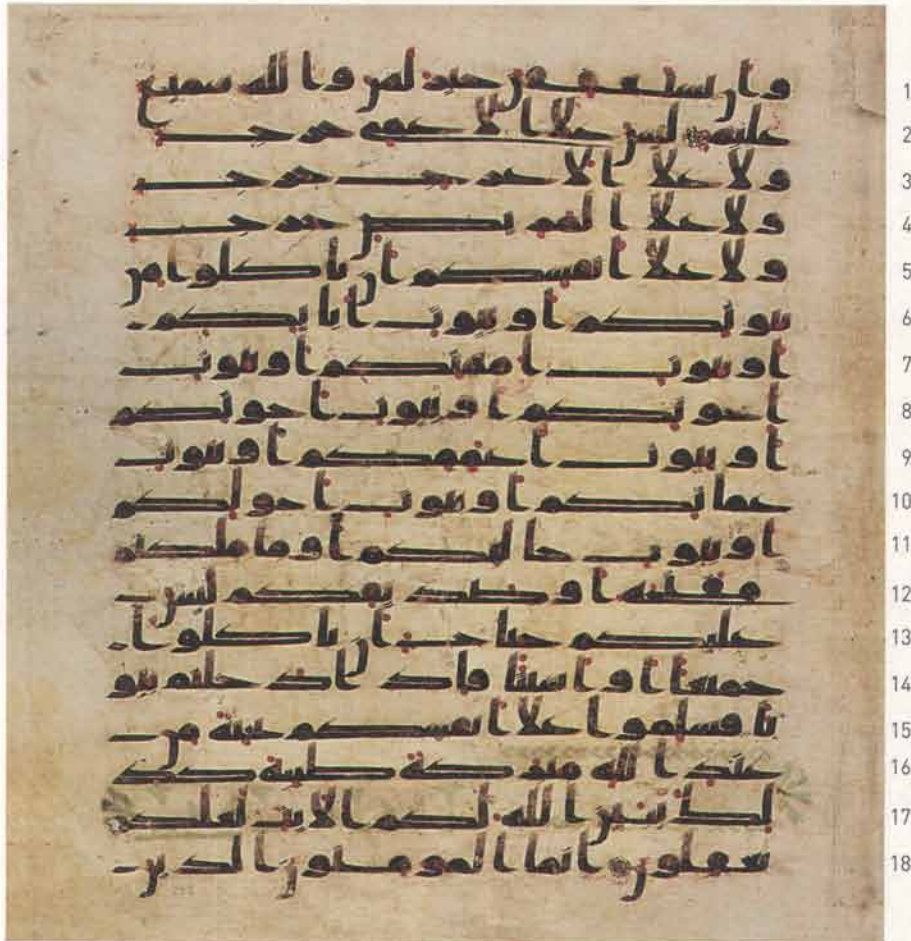 وان يستعففن خير لهن والله سميع 1
عليم ليس علا الاعمى حرج 2
ولا علا الاعرج حرج 3
ولا علا المريض حرج 4
ولا علا انفسكم ان تاكلوا من 5
بيوتكم او بيوت ابايكم 6
او بيوت امهتكم او بيوت 7
اخونكم او بيوت اخوتكم 8
او بيوت اعممكم او بيوت 9
عماتكم او بيوت اخولكم 10
او بيوت خالتكم او ما ملكتم 11
مفتحه او صديقكم ليس 12
عليكم جناح ان تاكلوا 13
جميعا او اشتاتا فاذا دخلتم بيو 14
تا فسلموا علا انفسكم تحية من 15
عند الله مبركة طيبة كذ 16
لك يبين الله لكم الايت لعلكم 17
تعقلون انما المومنون الذين 18